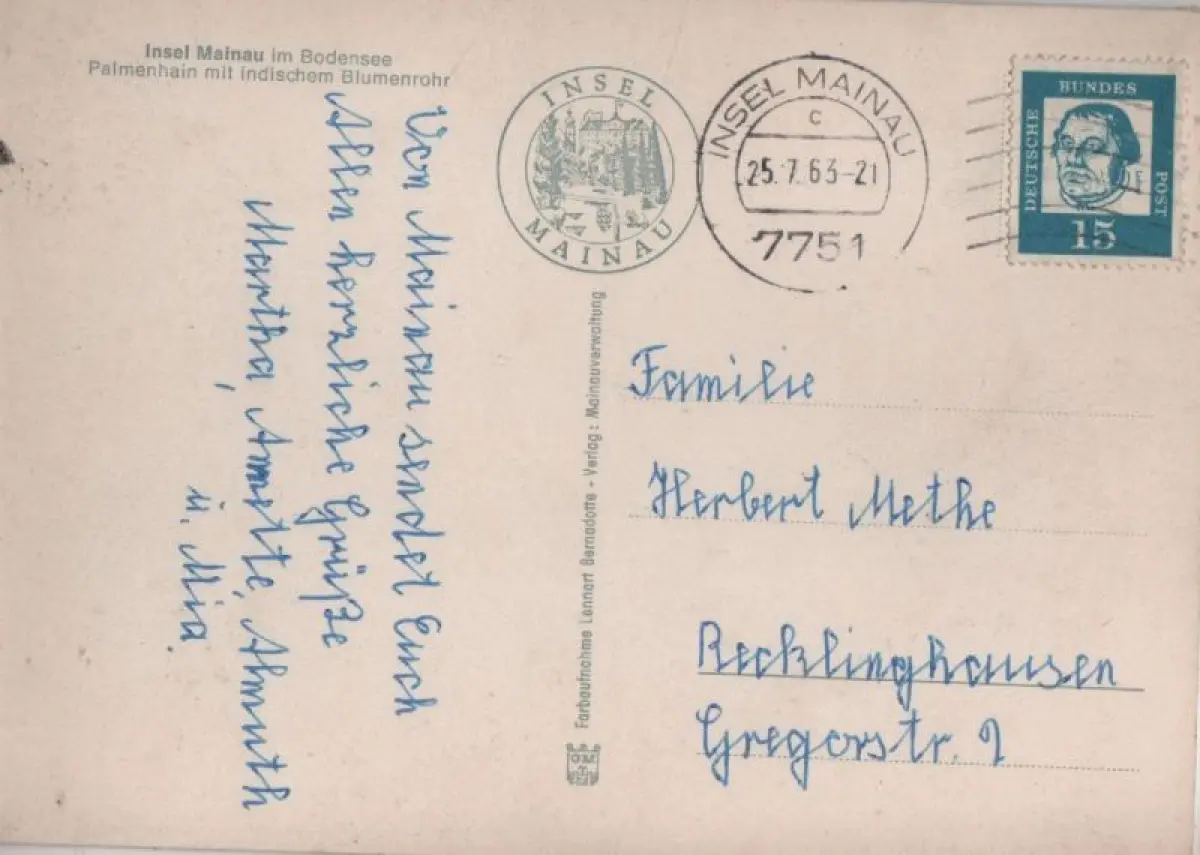 Insel Mainau im Bodensee
Palmenhain mit indischem Blumenrohr
Von Mainau sendet Euch
Allen herzliche Grüße
Martha, Annette, Almuth
u. Mia
INSEL
MAINAU
INSEL MAINAU
c
25.7.63-21
7751
DEUSCHE BUNDES POST
15
Farbaufnahme Lennart Bernadotte - Verlag: Mainauverwaltung
Familie
Herbert Methe
Recklinghausen
Gregorstr.